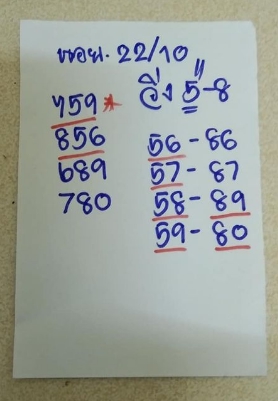 ฮอย. 22/10
วิ่ง 5"-8
759*
856
689
780
56-86
57-87
58-89
59-80